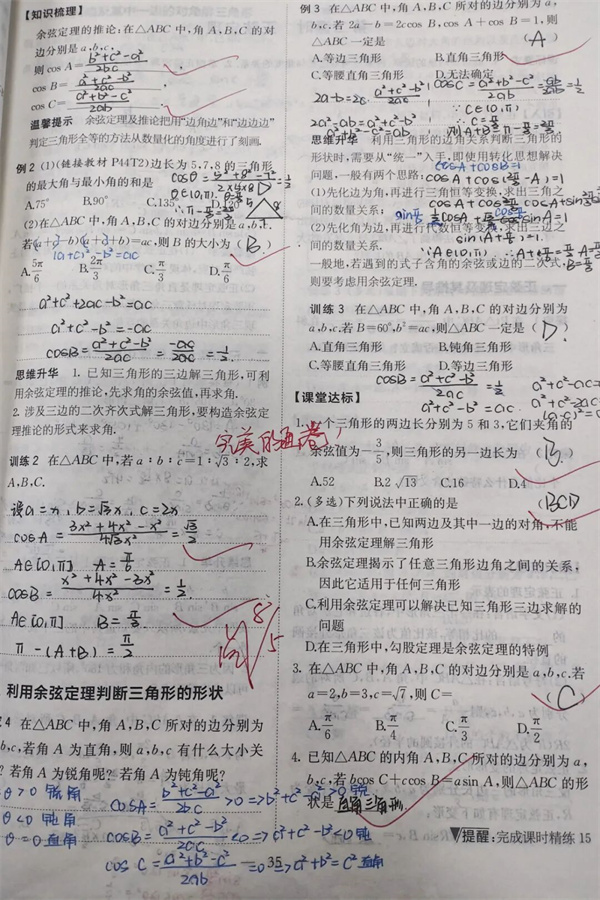 【知识梳理】
余弦定理的推论：在△ABC 中，角 A，B，C 的对
边分别是 a，b，c，
则 cos A= (b²+c²-a²)/2bc
cos B= (a²+c²-b²)/2ac
cos C= (a²+b²-c²)/2ab
温馨提示 余弦定理及推论把用“边角边”和“边边边”
判定三角形全等的方法从数量化的角度进行了刻画.
例 2 (1)(链接教材 P44T2)边长为 5,7,8 的三角形
的最大角与最小角的和是
A.75° B.90° C.135° D.120°
(2)在△ABC 中，角 A，B，C 的对边分别是 a，b，c.
若(a+c-b)(a+c+b)=ac，则 B 的大小为 ( B. )
(a+c)²-b²=ac
A.5π/6 B.2π/3 C.π/3 D.π/6
a²+c²+2ac-b²=ac
a²+c²-b²=-ac
cosB = (a²+c²-b²)/2ac = -ac/2ac = 1/2.
思维升华 1. 已知三角形的三边解三角形，可利
用余弦定理的推论，先求角的余弦值，再求角.
2. 涉及三边的二次齐次式解三角形，要构造余弦定
理推论的形式来求角.
训练 2 在△ABC 中，若 a∶b∶c=1∶√3∶2，求
A，B，C.
设a=x, b=√3x, c=2x
cosA = (3x²+4x²-x²)/4√3x² = √3/2
A∈[0,π] A=π/6
cosB = (x²+4x²-3x²)/4x² = 1/2.
A∈[0,π] B=π/3.
π-(A+B)=π/2
8/5
利用余弦定理判断三角形的形状
4 在△ABC 中，角 A，B，C 所对的边分别为
b，c，若角 A 为直角，则 a，b，c 有什么大小关
？若角 A 为锐角呢？若角 A 为钝角呢？
θ>0 锐角
θ<0 钝角
θ=0 直角
cosA = (b²+c²-a²)/2bc >0 => b²+c²-a²>0 锐
cosB = (a²+c²-b²)/2ac <0 => a²+c²-b²<0 钝
cos C = (a²+b²-c²)/2ab =0 => a²+b²=c² 直角
35
例 3 在△ABC 中，角 A，B，C 所对的边分别为 a，
b，c. 若 2a-b=2ccos B，cos A+cos B=1，则
△ABC 一定是 ( A )
A.等边三角形 B.直角三角形
C.等腰直角三角形 D.无法确定
cosC = (a²+b²-c²)/2ab = ab/2ab = 1/2
∵C∈(0,π)
2a²-ab=a²+c²-b² ∴C=π/3
a²+b²-c²=ab 则A+B=π-π/3=2π/3
思维升华 利用三角形的边角关系判断三角形的
形状时，需要从“统一”入手，即使用转化思想解决
问题，一般有两个思路：
cosA+cosB=1
cosA+cos(2π/3-A)=1
(1)先化边为角，再进行三角恒等变换，求出三角之
间的数量关系；
(2)先化角为边，再进行代数恒等变换，求出三边之
间的数量关系.
sin(A+π/6)=1.
一般地，若遇到的式子含角的余弦或边的二次式，
则要考虑用余弦定理.
B=π/3
训练 3 在△ABC 中，角 A，B，C 的对边分别为
a，b，c. 若 B=60°，b²=ac，则△ABC 一定是 ( D. )
A.直角三角形 B.钝角三角形
C.等腰直角三角形 D.等边三角形
cosB = (a²+c²-b²)/2ac = 1/2
a²+c²-b²=ac.
【课堂达标】
1. 一个三角形的两边长分别为 5 和 3，它们夹角的
余弦值为-3/5，则三角形的另一边长为 ( B. )
A.52 B.2√13 C.16 D.4
2.(多选)下列说法中正确的是 ( BCD )
A.在三角形中，已知两边及其中一边的对角，不能
用余弦定理解三角形
B.余弦定理揭示了任意三角形边角之间的关系，
因此它适用于任何三角形
C.利用余弦定理可以解决已知三角形三边求解的
问题
D.在三角形中，勾股定理是余弦定理的特例
3. 在△ABC 中，角 A，B，C 的对边分别是 a，b，c. 若
a=2，b=3，c=√7，则 C= ( C )
A.π/6 B.π/4 C.π/3 D.π/2
4. 已知△ABC 的内角 A，B，C 所对的边分别为 a，
b，c，若 bcos C+ccos B=asin A，则△ABC 的形
状是 直角三角形
提醒：完成课时精练 15